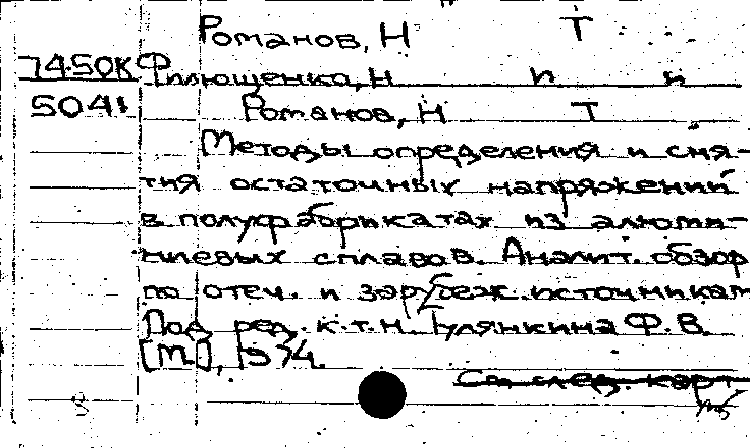 Романов, Н Т
7450к Филющенко, Н П и
5041 Романов, Н Т
Методы определения и сня-
тия остаточных напряжений
в полуфабрикатах из алюми-
ниевых сплавов. Аналит. обзор
по отеч. и зарубеж. источникам
Под ред. к.т.н. Гулянкина Ф. В.
[М.], 1974.
См след. карт
8